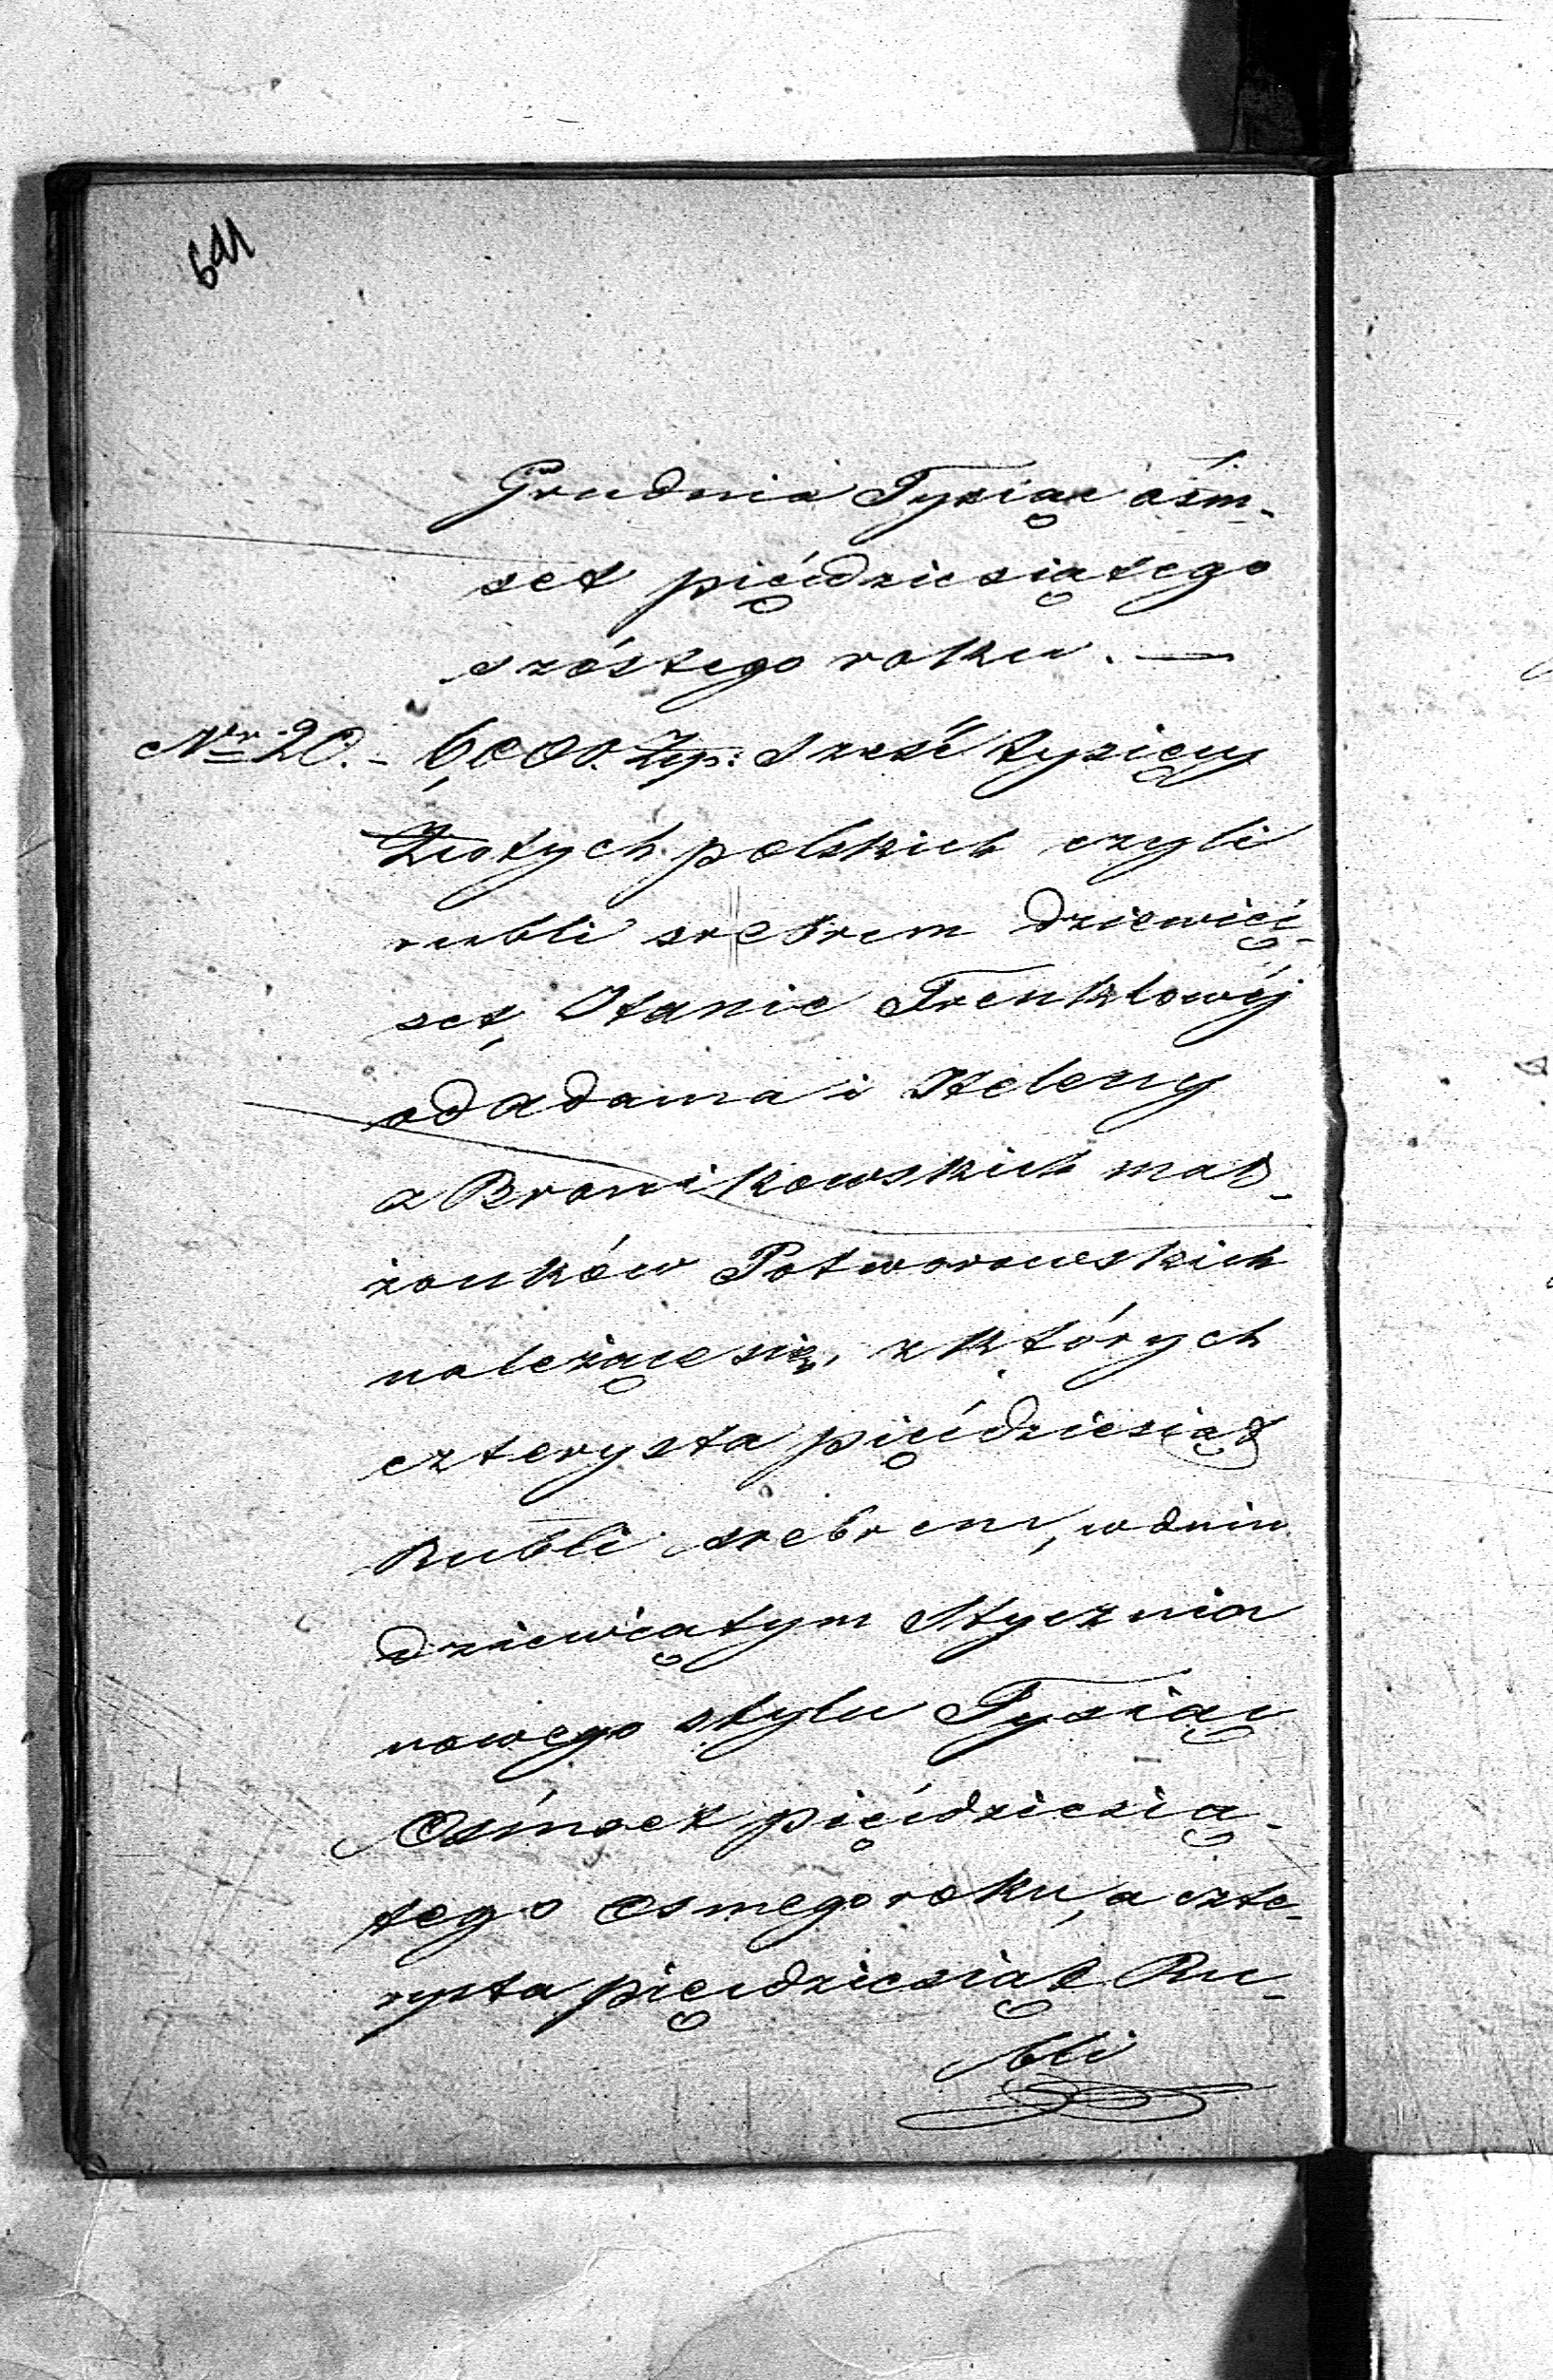 641
Grudnia Tysiąc ośm-
set pięćdziesiątego
szóstego roku. —
Nr 20. - 6,000. Złp: Sześć tysięcy
Złotych polskich czyli
rubli srebrem dziewięć-
set, Otanie Trenklowéj
od Adama i Heleny
z Bronikowskich mał-
żonków Potworowskich
należące się, z których
czterysta pięćdziesiąt
Rubli srebrem, w dniu
dziewiątym Stycznia
nowego stylu Tysiąc
Ośmset pięćdziesią-
tego osmego roku, a czte-
rysta pięćdziesiąt Ru-
bli